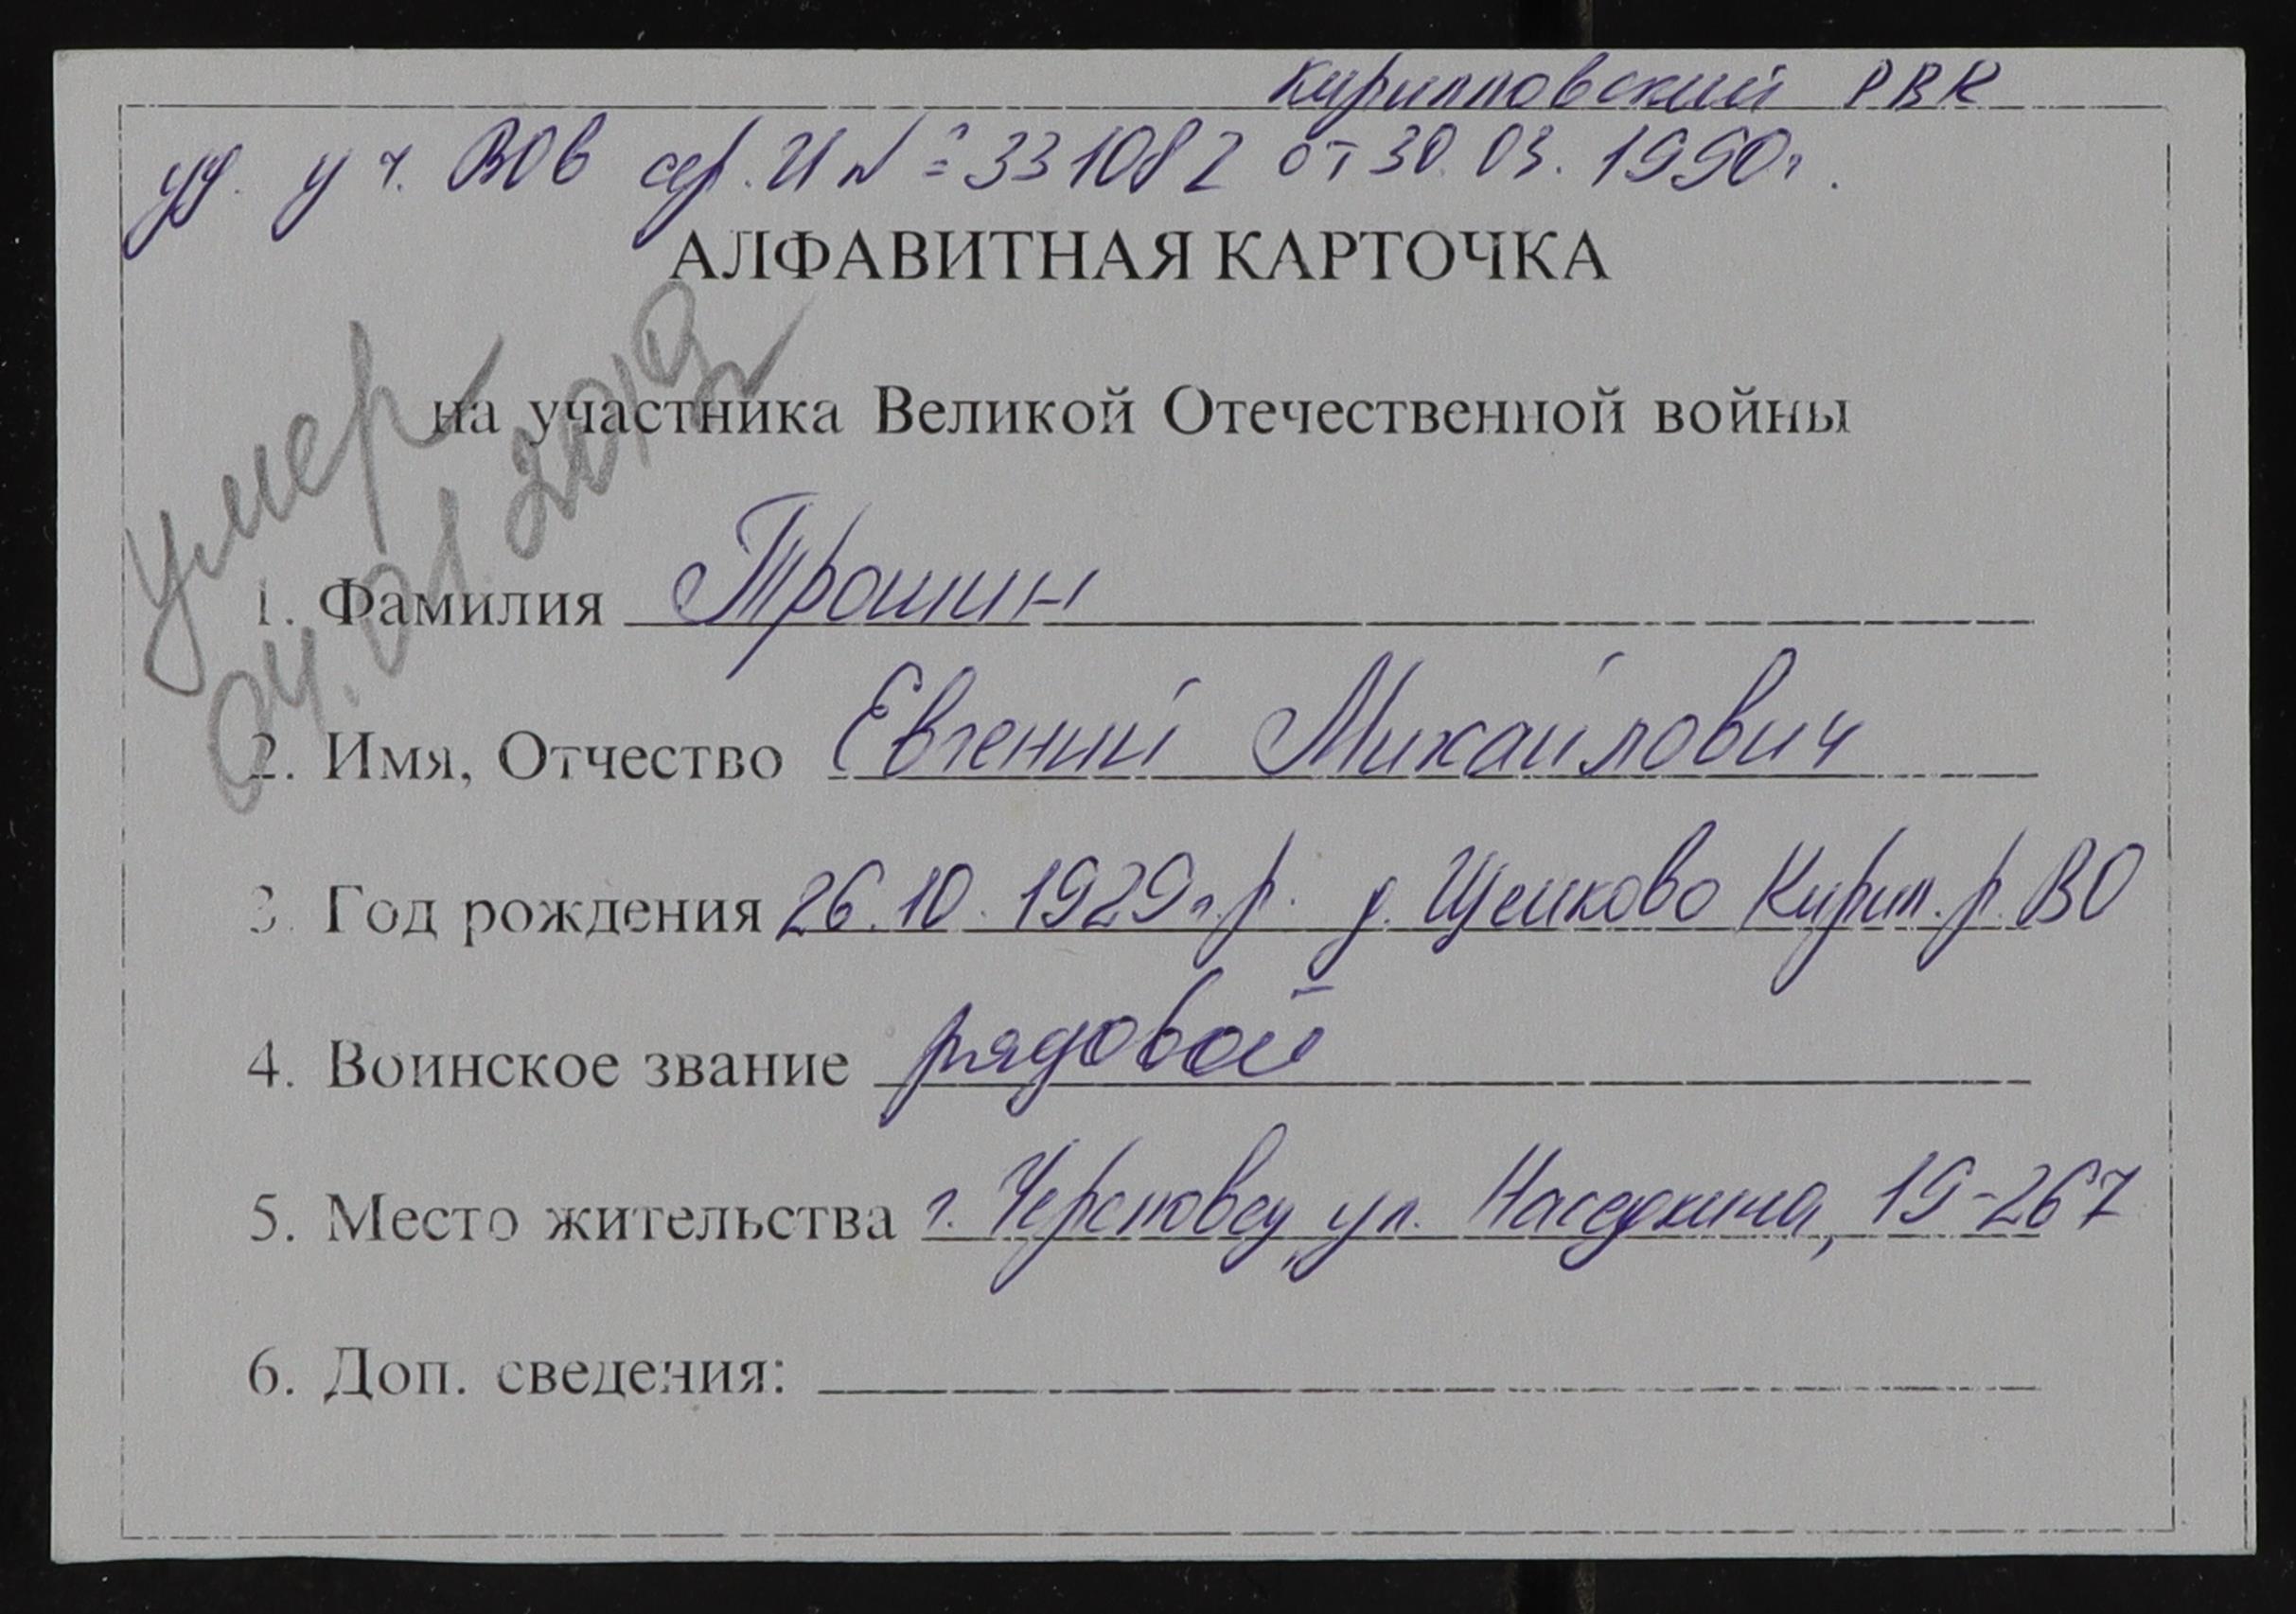 Кирилловский РВК
уд. уч. ВОв сер. И № 331082 от 30.03.1990г.
АЛФАВИТНАЯ КАРТОЧКА
на участника Великой Отечественной войны
умер
04.01.2019
1. Фамилия Трошин
2. Имя, Отчество Евгений Михайлович
3. Год рождения 26.10.1929г.р. д. Щелково Кирил. р. ВО
4. Воинское звание рядовой
5. Место жительства г. Череповец, ул. Наседкина, 19-267
6. Доп. сведения: